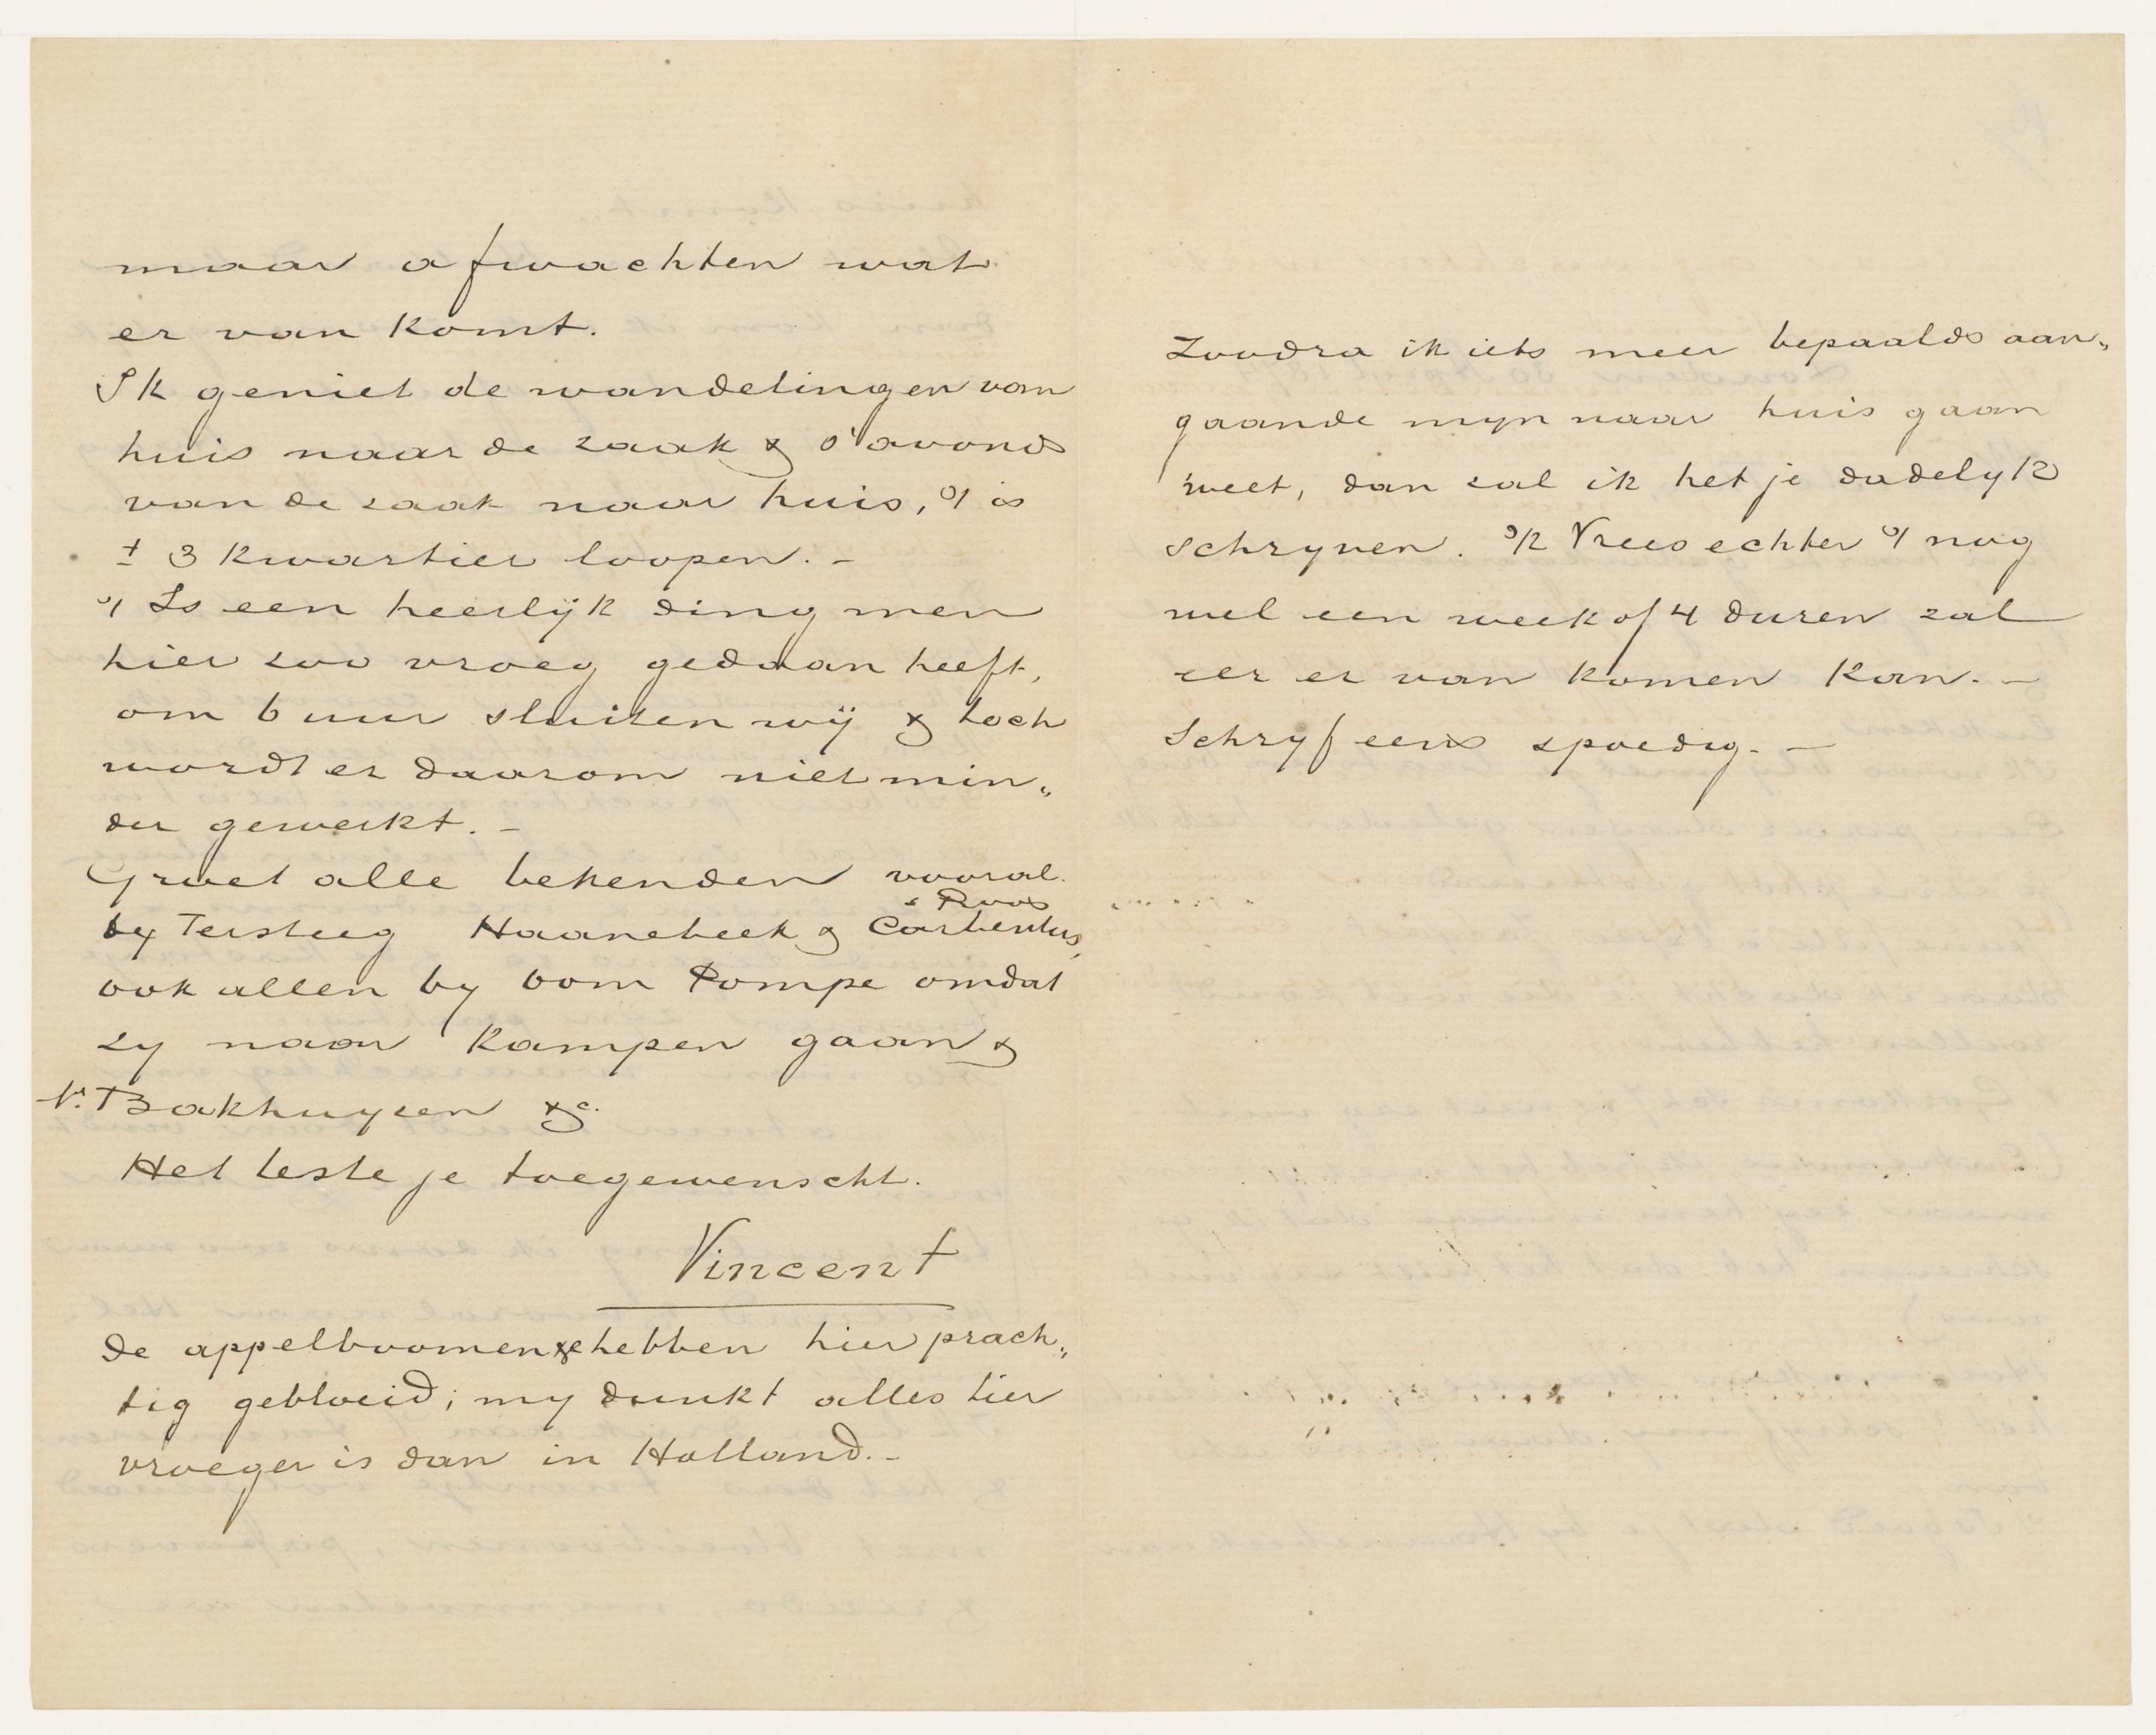 maar afwachten wat
er van komt.
Ik geniet de wandelingen van
huis naar de zaak & s'avonds
van de zaak naar huis, 't is
± 3 kwartier loopen. –
't Is een heerlijk ding men
hier zoo vroeg gedaan heeft,
om 6 uur sluiten wij & toch
wordt er daarom niet min„
der gewerkt. –
Groet alle bekenden vooral
& Roos
by Tersteeg Haanebeek & Carbentus,
ook allen by oom Pompe omdat
zy naar Kampen gaan &
Bakhuyzen &c.
Het beste je toegewenscht.
Vincent
De appelboomen &c hebben hier prach„
tig gebloeid; my dunkt alles hier
vroeger is dan in Holland. –
Zoodra ik iets meer bepaalds aan„
gaande myn naar huis gaan
weet, dan zal ik het je dadelyk
schryven. Ik Vrees echter 't nog
wel een week of 4 duren zal
eer er van komen kan. –
Schryf eens spoedig. –